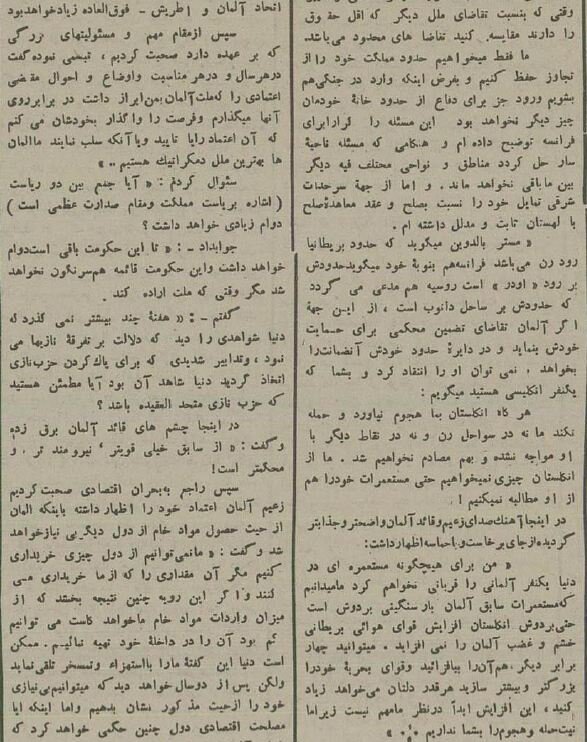 وقتی که بنسبت تقاضای ملل دیگر که اقل حقوق
را دارند مقایسه کنید تقاضا های محدود می‌باشد.
ما فقط میخواهیم حدود مملکت خود را از
تجاوز حفظ کنیم و بفرض اینکه وارد در جنگی هم
بشویم ورود جز برای دفاع از حدود خانهٔ خودمان
چیز دیگر نخواهد بود این مسئله را قرارا برای
فرانسه توضیح داده ام و هنکامی که مسئله ناحیهٔ
سار حل کردد مناطق و نواحی مختلف فیه دیگر
بین ما باقی نخواهد ماند. و اما از جهة سرحدات
شرقی تمایل خود را نسبت بصلح و عقد معاهدهٔ صلح
با لهستان ثابت و مدلل داشته ام.
« مستر بالدوین میگوید که حدود بریطانیا
رود رن می‌باشد فرانسه هم بنوبهٔ خود میگوید حدودش
بر رود « اودر » است روسیه هم مدعی می گردد
که حدودش بر ساحل دانوب است ، از این جهة
اگر آلمان تقاضای تضمین محکمی برای حمایت
خودش بنماید و در دایرهٔ حدود خودش آنضمانت را
بخواهد . نمی توان او را انتقاد کرد و بشما که
یکنفر انکلیسی هستید میگویم :
هر گاه انکلستان بما هجوم نیاورد و حمله
نکند ما نه در سواحل رن و نه در نقاط دیگر با
او مواجه نشده و بهم مصادم نخواهیم شد . ما از
انکلستان چیزی نمیخواهیم حتی مستعمرات خودرا هم
از او مطالبه نمیکنیم !
در اینجا آهنك صدای زعیم و قائد آلمان واضحتر و جذابتر
گردیده از جای برخاست و با حماسه اظهار داشت:
« من برای هیچگونه مستعمره ای در
دنیا یکنفر آلمانی را قربانی نخواهم کرد ما میدانیم
که مستعمرات سابق آلمان بار سنگینی بردوش است
حتی بردوش انکلستان افزایش قوای هوائی بریطانی
خشم و غضب آلمان را نمی افزاید . میتوانید چهار
برابر دیگر هم آنرا بیافزائید وقوای بحریهٔ خودرا
بزرگتر و بیشتر سازید هرقدر دلتان می‌خواهد زیاد
کنید ، این افزایش ابداً در نظر ما مهم نیست زیرا ما
نیت حمله و هجوم را بشما نداریم »
اتحاد آلمان و اطریش - فوق‌العاده زیاد خواهد بود
سپس از مقام مهم و مسئولیتهای بزرگی
که بر عهده دارد صحبت کردیم ، تبسمی نموده گفت
در هر سال و در هر مناسبت و اوضاع و احوال مقتضی
اعتمادی را که ملت آلمان بمن ابراز داشت در برابر روی
آنها میگذارم و فرصت را واگذار بخودشان می کنم
که آن اعتماد را یا تایید و یا آنکه سلب نمایند ما المان
ها بهترین ملل دمکراتیك هستیم .. »
سئوال کردم : « آیا جمع بین دو ریاست
( اشاره بریاست مملکت و مقام صدارت عظمی است )
دوام زیادی خواهد داشت ؟
جوابداد -: « تا این حکومت باقی است دوام
خواهد داشت و این حکومت قائمه هم سرنگون نخواهد
شد مگر وقتی که ملت اراده کند .
گفتم -: « هفتهٔ چند بیشتر نمی گذرد که
دنیا شواهدی را دید که دلالت بر تفرقهٔ نازیها می
نمود ، و تدابیر شدیدی که برای پاك کردن حزب نازی
اتخاذ گردید دنیا شاهد آن بود آیا مطمئن هستید
که حزب نازی متحد العقیده باشد ؟
در اینجا چشم های قائد آلمان برق زده
وگفت : « از سابق خیلی قویتر ، نیرومند تر ، و
محکمتر است!
سپس راجع به بحران اقتصادی صحبت کردیم
زعیم آلمان اعتماد خود را اظهار داشته باینکه المان
از حیث حصول مواد خام از دول دیگر بی نیاز خواهد
شد و گفت : « ما نمی‌توانیم از دول چیزی خریداری
کنیم مگر آن مقداری را که از ما خریداری می
کنند و اگر این رویه چنین نتیجه بخشد که از
میزان واردات مواد خام ما خواهد کاست می توانیم
کم بود آن را در داخلهٔ خود تهیه نمائیم . ممکن
است دنیا این گفتهٔ ما را با استهزاء و تمسخر تلقی نماید
ولکن پس از دو سال خواهد دید که میتوانیم بی نیازی
خود را از حیث مذکور نشان بدهیم واما اینکه ایا
مصلحت اقتصادی دول چنین حکمی خواهد کرد که